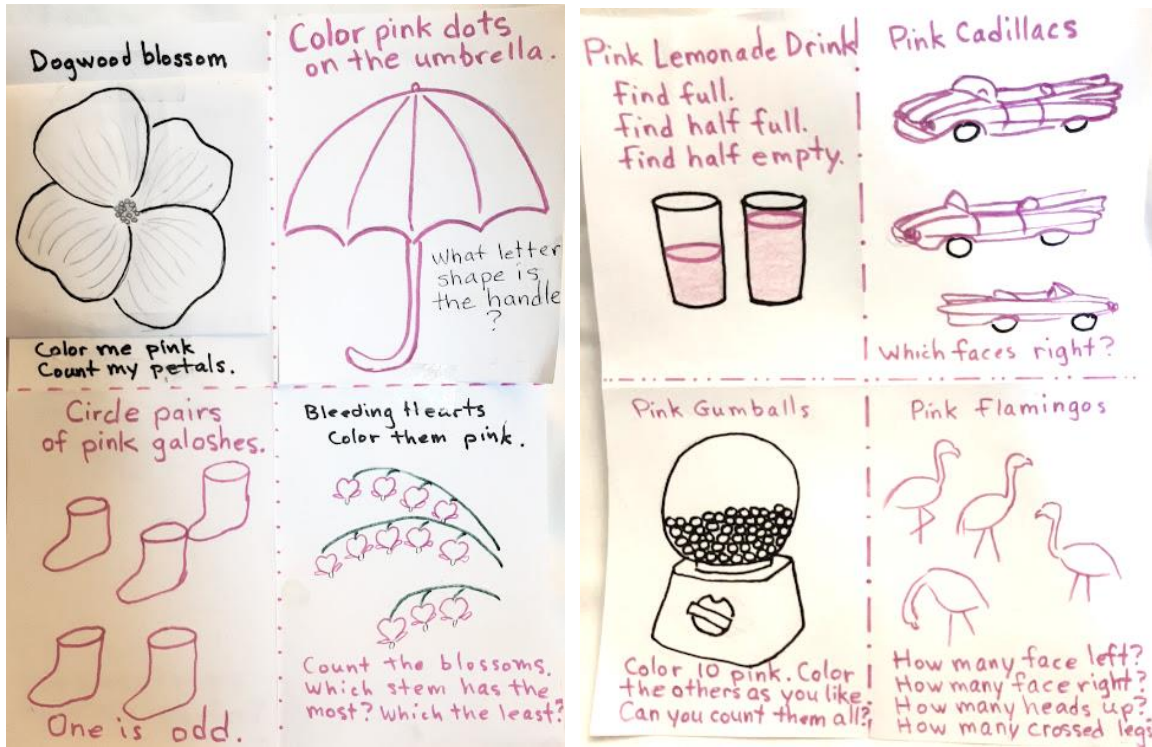 Dogwood blossom
Color me pink
Count my petals.
Color pink dots
on the umbrella.
What letter
shape is
the handle
?
Circle pairs
of pink galoshes.
One is odd.
Bleeding Hearts
Color them pink.
Count the blossoms.
Which stem has the
most? Which the least?
Pink Lemonade Drink
find full.
find half full.
find half empty.
Pink Cadillacs
Which faces right?
Pink Gumballs
Color 10 pink. Color
the others as you like.
Can you count them all?
Pink flamingos
How many face left?
How many face right?
How many heads up?
How many crossed legs